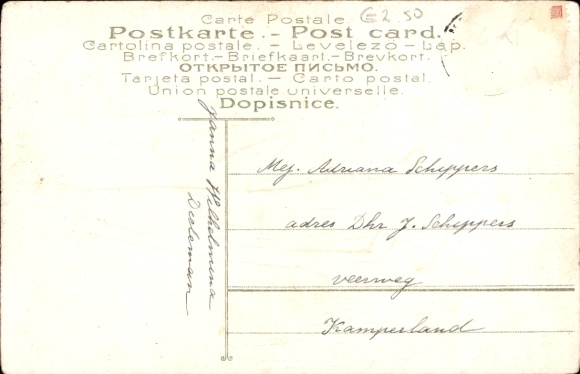 Carte Postale.
€2.50
Postkarte. - Post card.
Cartolina postale. - Levelező - Lap.
Brefkort. - Briefkaart. - Brevkort.
ОТКРЫТОЕ ПИСЬМО.
Tarjeta postal. - Carto postal.
Union postale universelle.
Dopisnice.
Janna Wilhelmina
Dieleman
Mej. Adriana Schippers
adres Dhr J. Schippers
veerweg
Kamperland